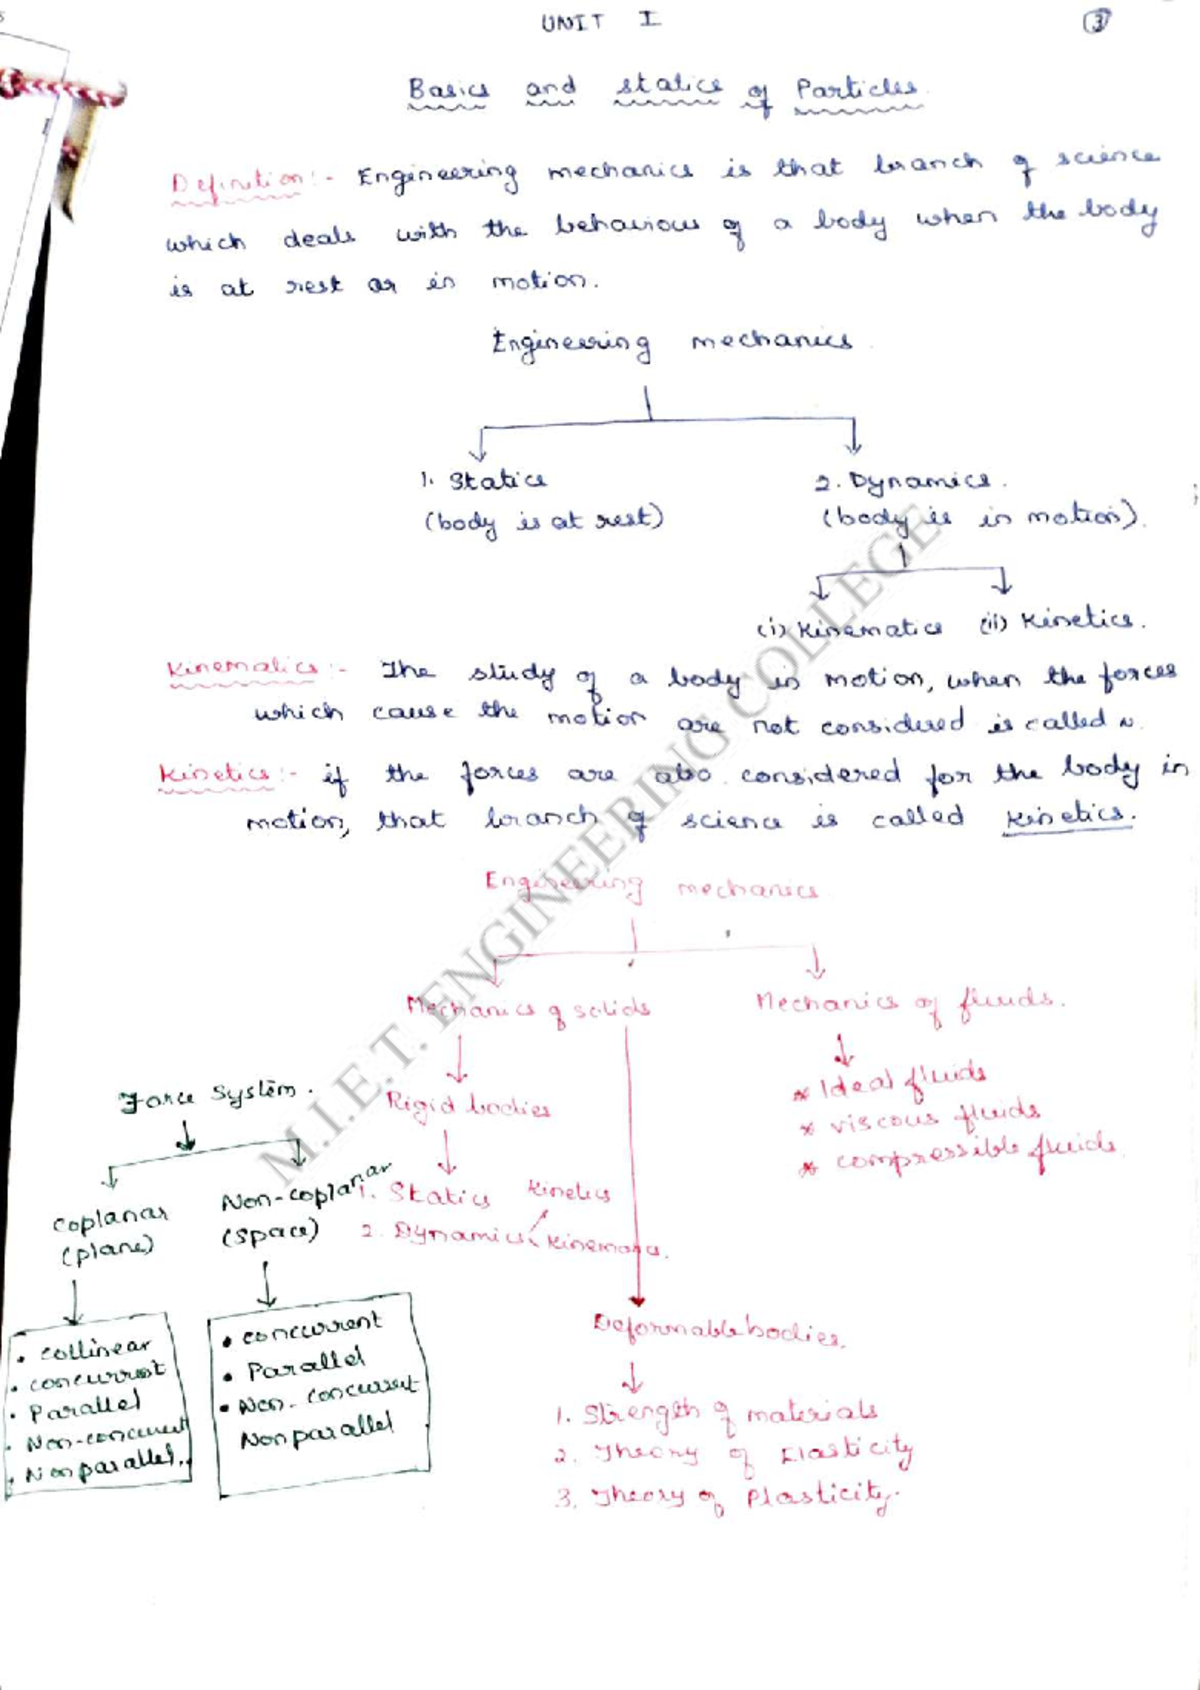 UNIT I
3
Basics and statics of Particles.
Definition:- Engineering mechanics is that branch of science
which deals with the behaviour of a body when the body
is at rest or in motion.
Engineering mechanics.
1. Statics
2. Dynamics.
(body is at rest)
(body is in motion).
(i) Kinematics (ii) Kinetics.
Kinematics:- The study of a body in motion, when the forces
which cause the motion are not considered is called
Kinetics:- if the forces are also considered for the body in
motion, that branch of science is called Kinetics.
Engineering mechanics
Mechanics of solids
Mechanics of fluids.
Rigid bodies
* Ideal fluids
* viscous fluids
* compressible fluids.
1. Statics
2. Dynamics
Kinetics
Kinematics.
Deformable bodies.
1. Strength of materials
2. Theory of Elasticity
3. Theory of Plasticity.
Force System.
Coplanar
(plane)
Non-coplanar
(space)
• collinear
• concurrent
• Parallel
• Non-concurrent
• Nonparallel.
• concurrent
• Parallel
• Non-concurrent
Nonparallel
M.I.E.T. ENGINEERING COLLEGE